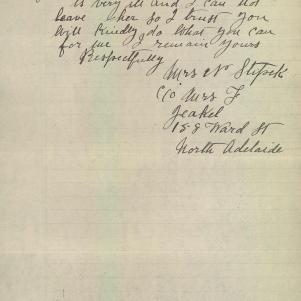 is very ill and I can not
leave her so I trust you
will kindly do what you can
for me I remain yours
Respectfully
Mrs
c/o Mrs F
Jeakel
158 Ward St
North Adelaide